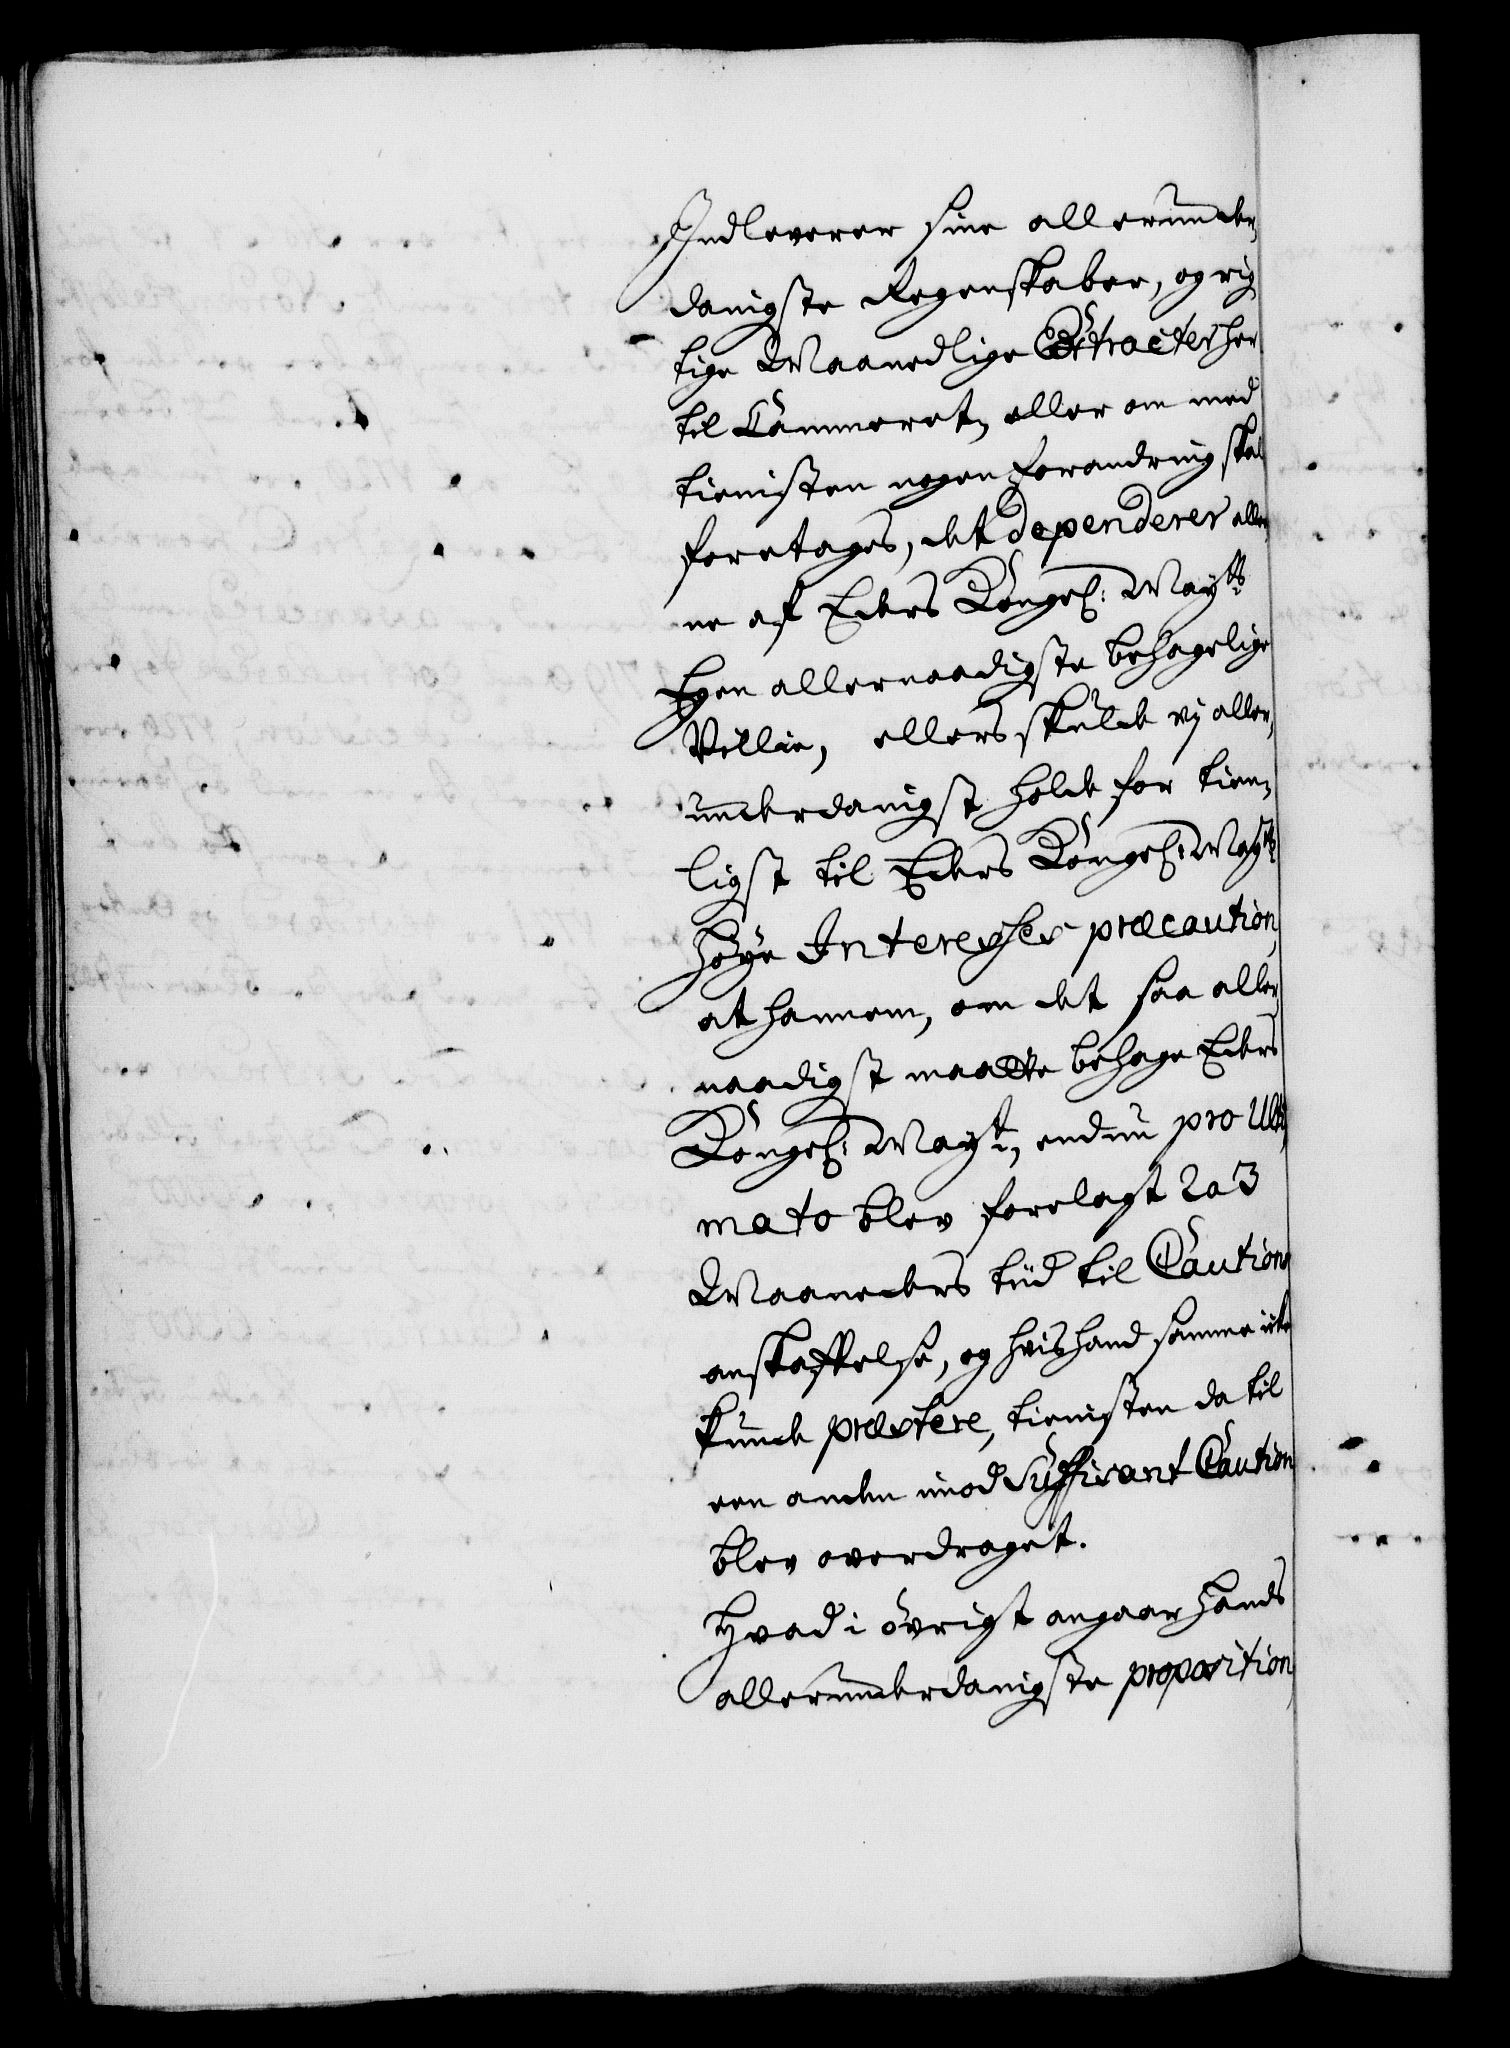 Indleverer sine allerunder,
danigste Regenskaber, og rig
tige Maanedlige Extracter her
til Cammeret, eller om med
tienisten nogen forandring skal
foretages, det dependerer alle,
ne af Eders Kongel: May:ts
Egen allernaadigste behagelige
Villie, ellers skulde vj aller,
underdanigst holde for tien,
ligst til Eders Kongel: May:ts
høye Interesses præcaution,
at hannem, om det saa aller
naadigst maatte behage Eders
Kongel: May:t, endnu pro Ulti,
mato blev forelagt 2 a 3
Maaneders tiid til Cautions
anskaffelse, og hvis hand samme icke
kunde præstere, tienisten da til
een anden imod Suffisant Caution
blev overdraget.
Hvad i øvrigt angaar hands
allerunderdanigste proposition,